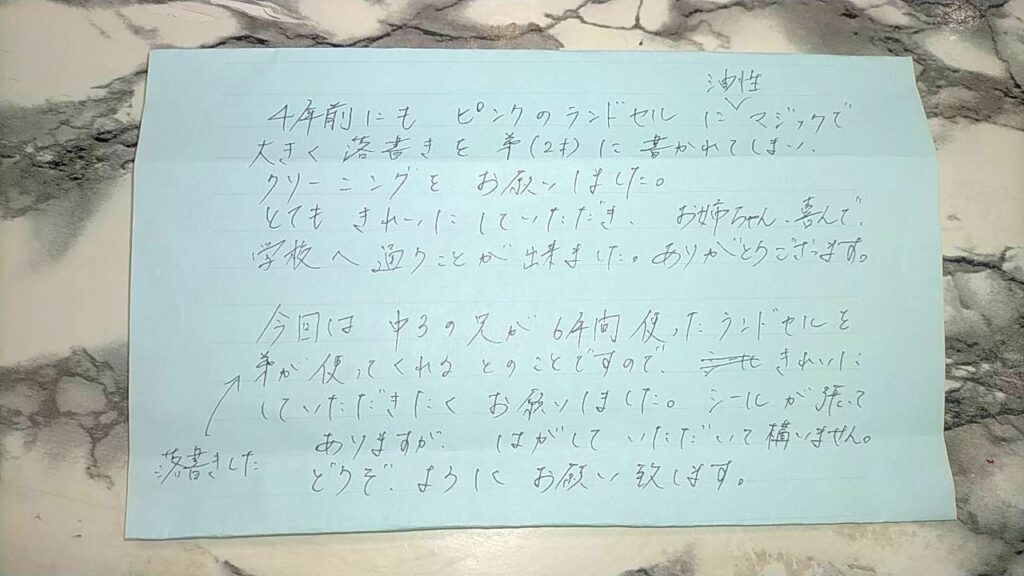 油性
4年前にも ピンクのランドセル に マジックで
大きく 落書きを 弟(2才)に 書かれてしまい、
クリーニングを お願いしました。
とても きれいにしていただき、 お姉ちゃん、喜んで、
学校へ 通うことが 出来ました。ありがとうございます。
今回は 中3の兄が 6年間 使ったランドセルを
弟が 使ってくれる とのことですので、 きれいに
していただきたく お願いしました。シールが 張って
ありますが、 はがして いただいて 構いません。
落書きした
どうぞ、よろしく お願い致します。